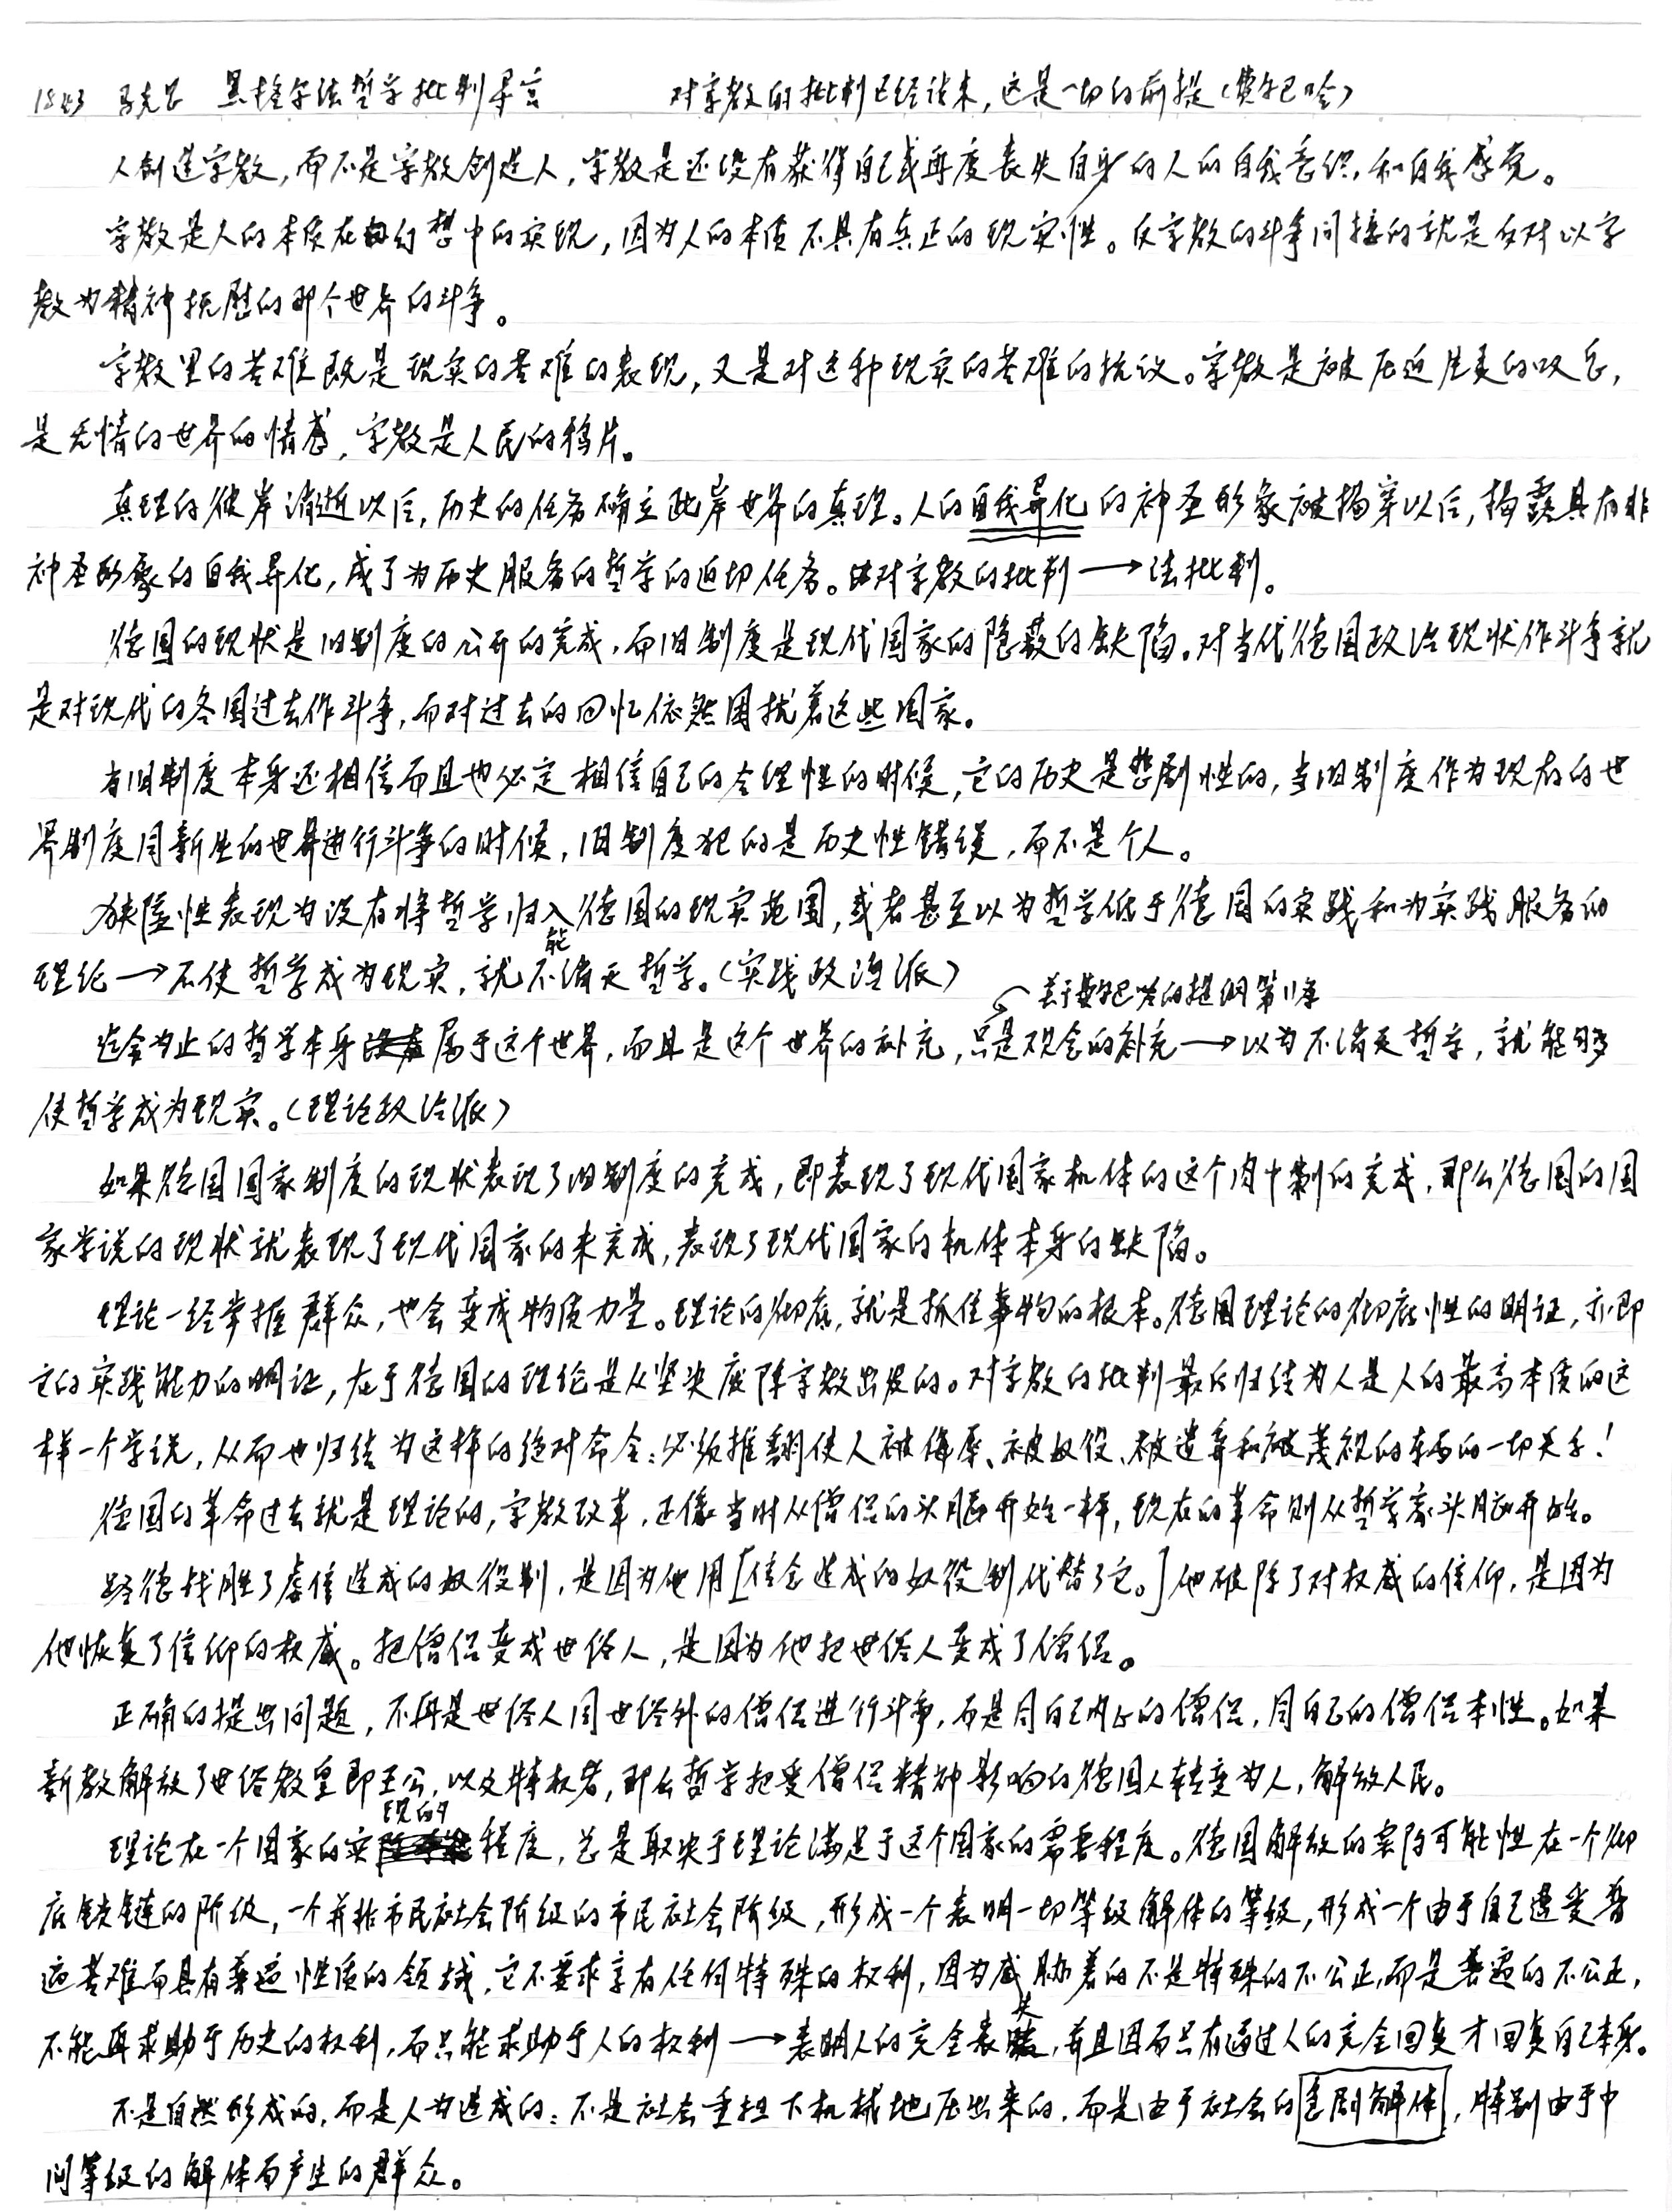 1843 马克思 黑格尔法哲学批判导言 对宗教的批判已经结束，这是一切的前提（费尔巴哈）
人创造宗教，而不是宗教创造人，宗教是还没有获得自己或再度丧失自身的人的自我意识，和自我感觉。
宗教是人的本质在幻想中的实现，因为人的本质不具有真正的现实性。反宗教的斗争间接的就是反对以宗
教为精神抚慰的那个世界的斗争。
宗教里的苦难既是现实的苦难的表现，又是对这种现实的苦难的抗议。宗教是被压迫生灵的叹息，
是无情的世界的情感，宗教是人民的鸦片。
真理的彼岸消逝以后，历史的任务确立此岸世界的真理。人的自我异化的神圣形象被揭穿以后，揭露具有非
神圣形象的自我异化，成了为历史服务的哲学的迫切任务。由对宗教的批判→法批判。
德国的现状是旧制度的公开的完成，而旧制度是现代国家的隐蔽的缺陷。对当代德国政治现状作斗争就
是对现代的各国过去作斗争，而对过去的回忆依然困扰着这些国家。
当旧制度本身还相信而且也必定相信自己的合理性的时候，它的历史是悲剧性的，当旧制度作为现存的世
界制度同新生的世界进行斗争的时候，旧制度犯的是历史性错误，而不是个人。
狭隘性表现为没有将哲学归入德国的现实范围，或者甚至以为哲学低于德国的实践和为实践服务的
理论→不使哲学成为现实，就不能消灭哲学。（实践政治派）
关于费尔巴哈的提纲第11条
迄今为止的哲学本身属于这个世界，而且是这个世界的补充，只是观念的补充→以为不消灭哲学，就能够
使哲学成为现实。（理论政治派）
如果德国国家制度的现状表现了旧制度的完成，即表现了现代国家机体的这个肉中刺的完成，那么德国的国
家学说的现状就表现了现代国家的未完成，表现了现代国家的机体本身的缺陷。
理论一经掌握群众，也会变成物质力量。理论的彻底，就是抓住事物的根本。德国理论的彻底性的明证，亦即
它的实践能力的明证，在于德国的理论是从坚决废除宗教出发的。对宗教的批判最后归结为人是人的最高本质的这
样一个学说，从而也归结为这样的绝对命令：必须推翻使人被侮辱、被奴役、被遗弃和被蔑视的东西的一切关系！
德国的革命过去就是理论的，宗教改革，正像当时从僧侣的头脑开始一样，现在的革命则从哲学家头脑开始。
路德战胜了虔信造成的奴役制，是因为他用[信念造成的奴役制代替了它。]他破除了对权威的信仰，是因为
他恢复了信仰的权威。把僧侣变成世俗人，是因为他把世俗人变成了僧侣。
正确的提出问题，不再是世俗人同世俗外的僧侣进行斗争，而是同自己内心的僧侣，同自己的僧侣本性。如果
新教解放了世俗教皇即王公，以及特权者，那么哲学把受僧侣精神影响的德国人转变为人，解放人民。
理论在一个国家的实现的程度，总是取决于理论满足于这个国家的需要程度。德国解放的实际可能性在一个彻
底锁链的阶级，一个并非市民社会阶级的市民社会阶级，形成一个表明一切等级解体的等级，形成一个由于自己遭受普
遍苦难而具有普遍性质的领域，它不要求享有任何特殊的权利，因为威胁着的不是特殊的不公正，而是普遍的不公正，
不能再求助于历史的权利，而只能求助于人的权利→表明人的完全丧失，并且因而只有通过人的完全回复才回复自己本身。
不是自然形成的，而是人为造成的：不是社会重担下机械地压出来的，而是由于社会的急剧解体，特别由于中
间等级的解体而产生的群众。